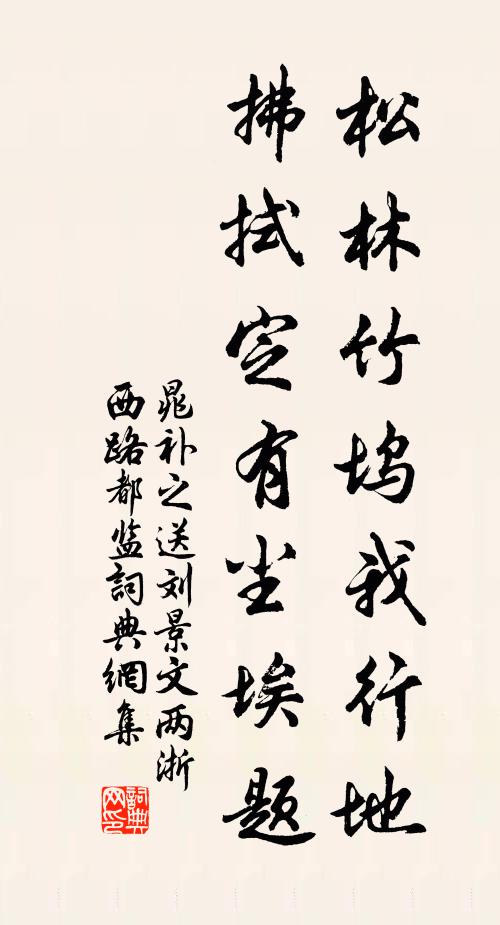 松林竹坞我行地
拂拭定有尘埃题
晁补之送刘景文两浙
西路都监詞典網集
詞典
网印